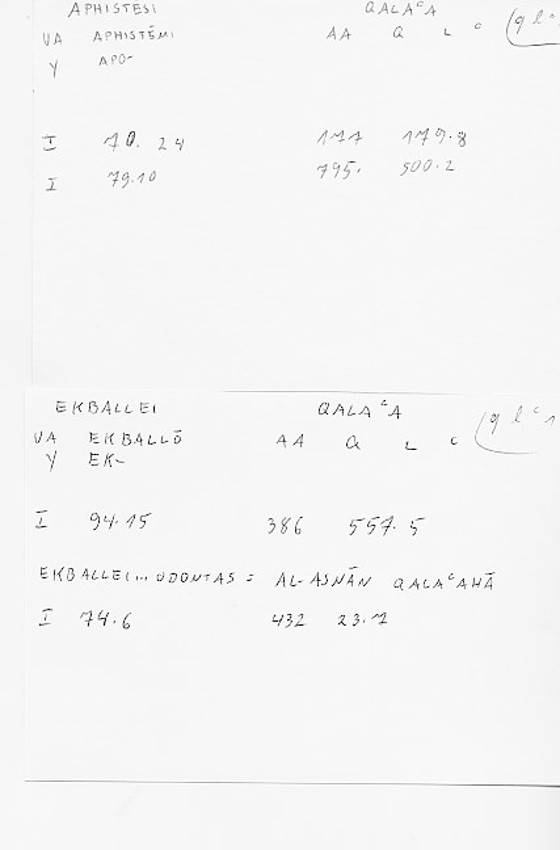 APHISTESI QALAᶜA
VA APHISTĒMI AA Q L ᶜ (q l ᶜ
Y APO-
I 70. 24 171 179.8
I 79.10 795. 500.2
EKBALLEI QALAᶜA
VA EKBALLŌ AA Q L ᶜ (q l ᶜ 1
Y EK-
I 94.15 386 557.5
EKBALLEI... ODONTAS = AL-ASNĀN QALAᶜAHĀ
I 74.6 432 23.1